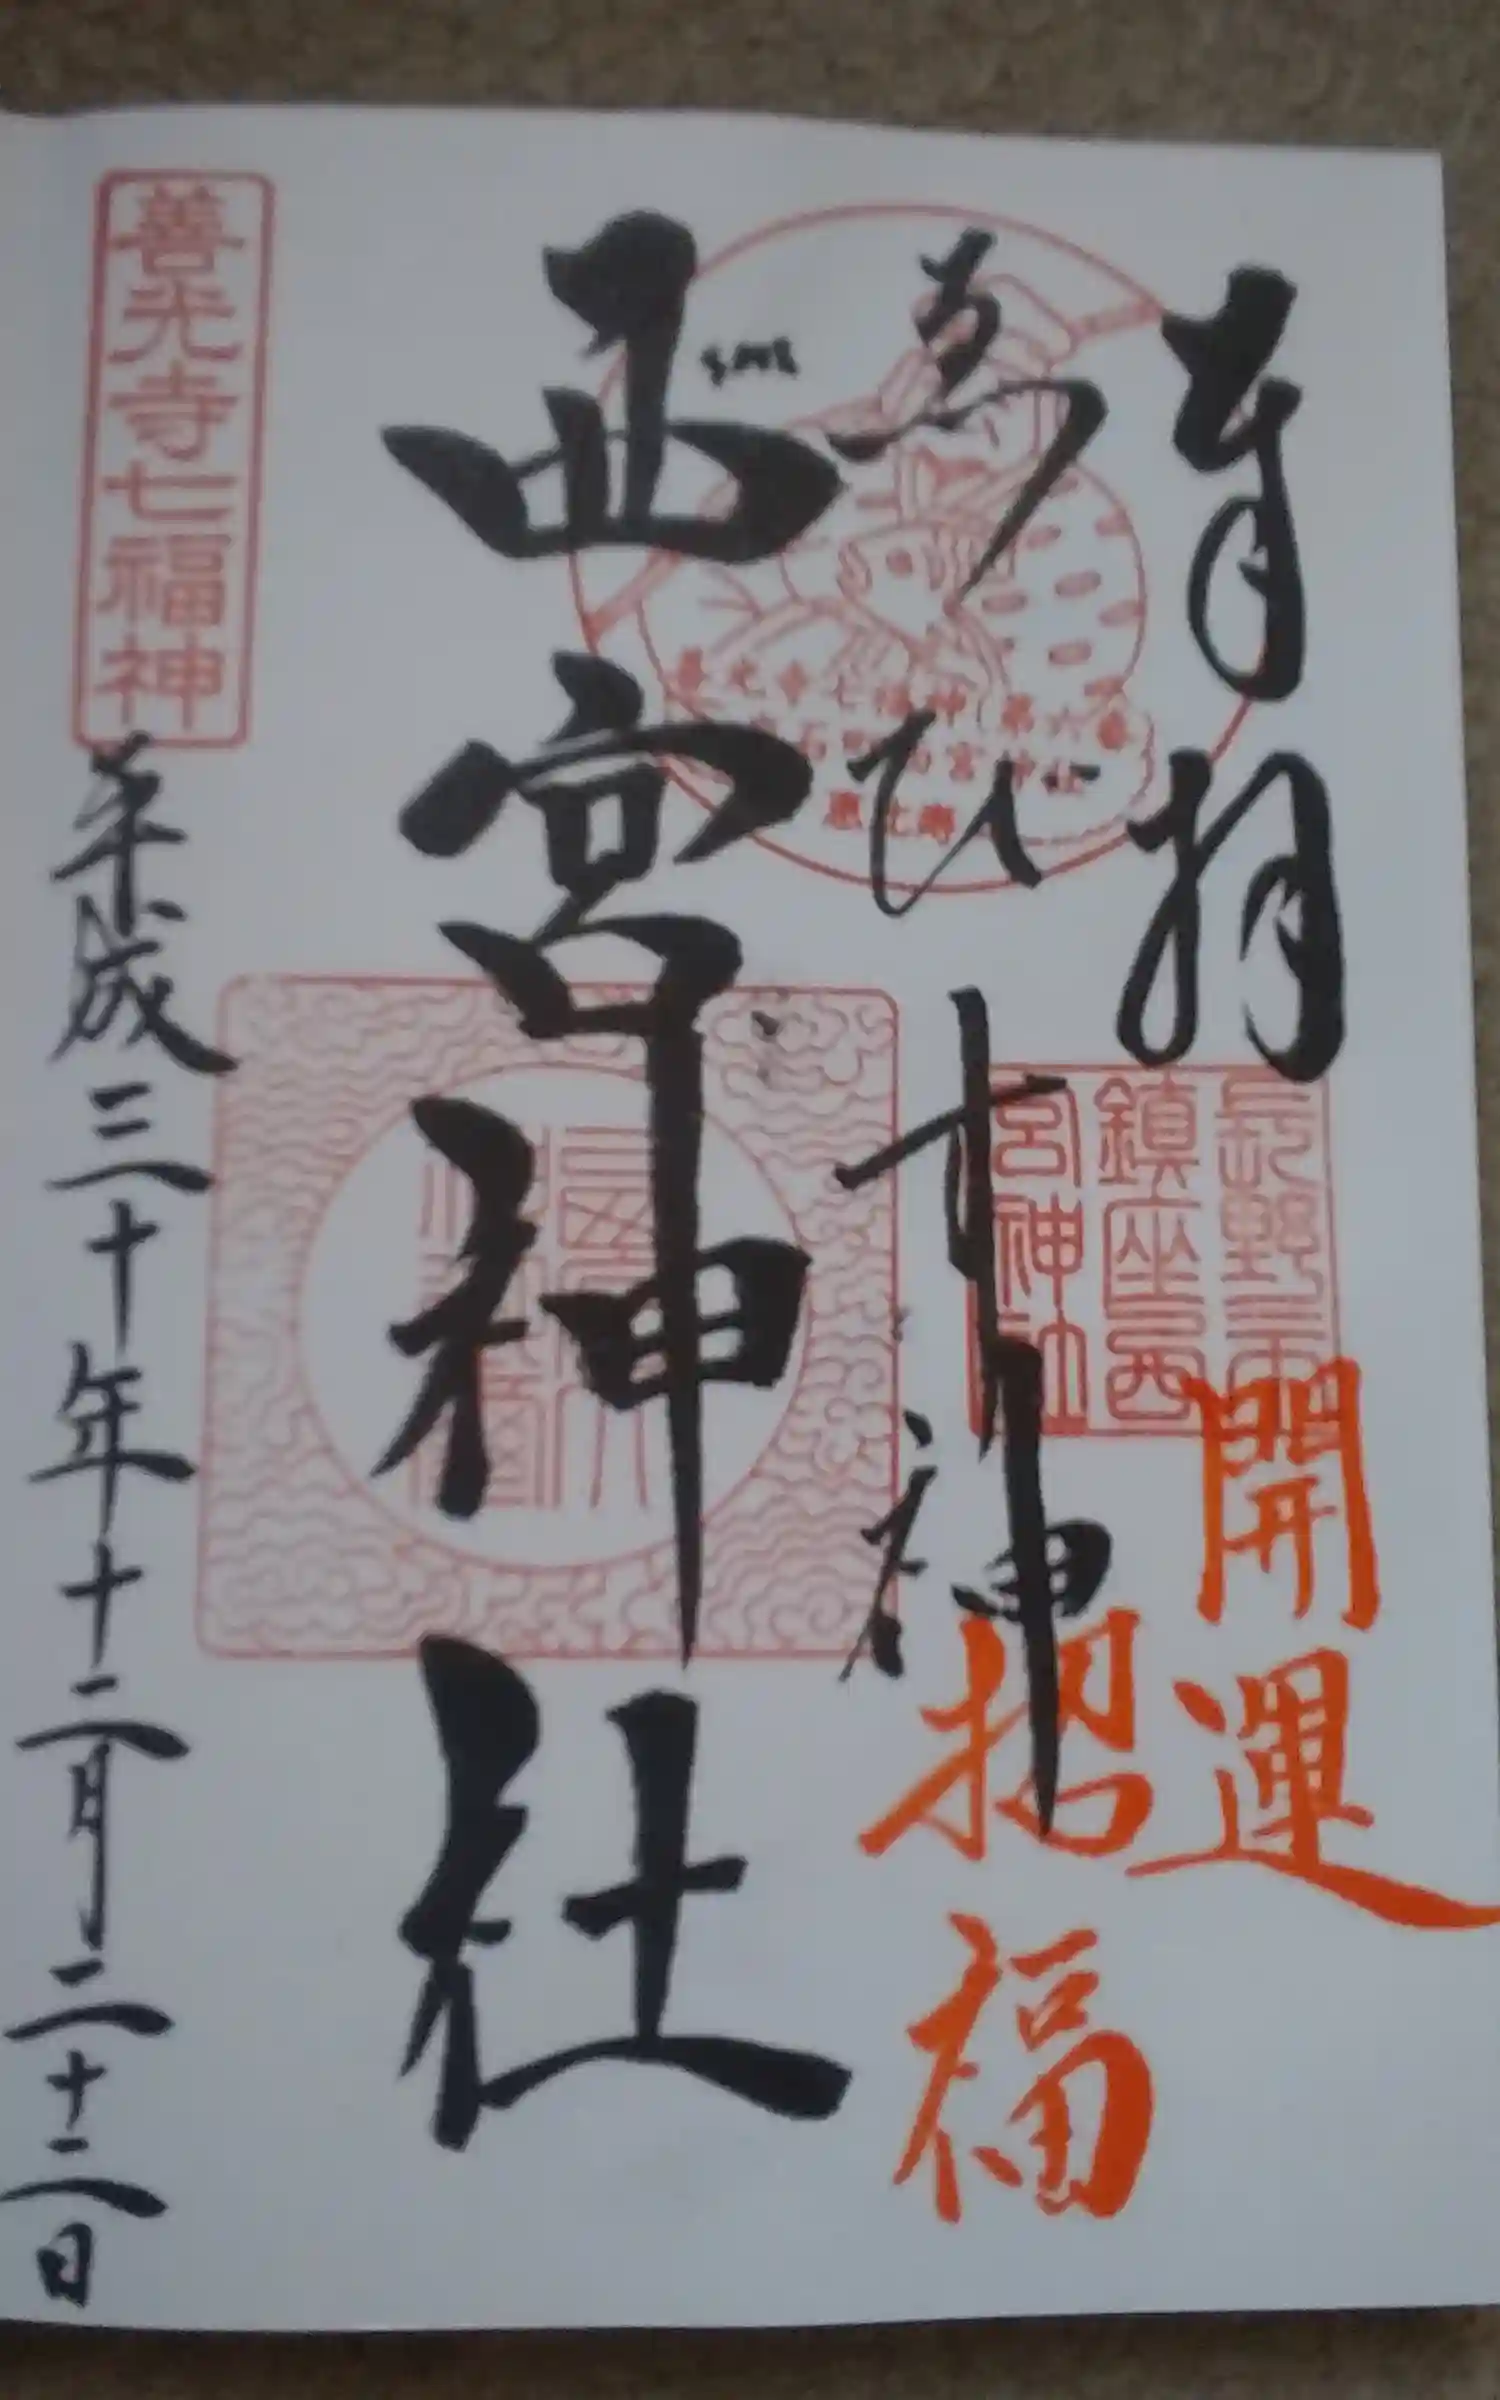 奉拝
開運
招福
ゑびす神
善光寺七福神 第六番
西宮神社
恵比寿
長野市
鎮座西
宮神社
西宮神社
善光寺七福神
平成三十年十二月二十二日